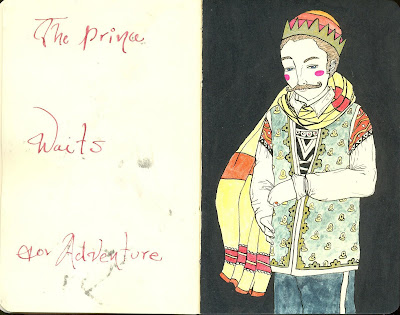 The Prince
Waits
for Adventure